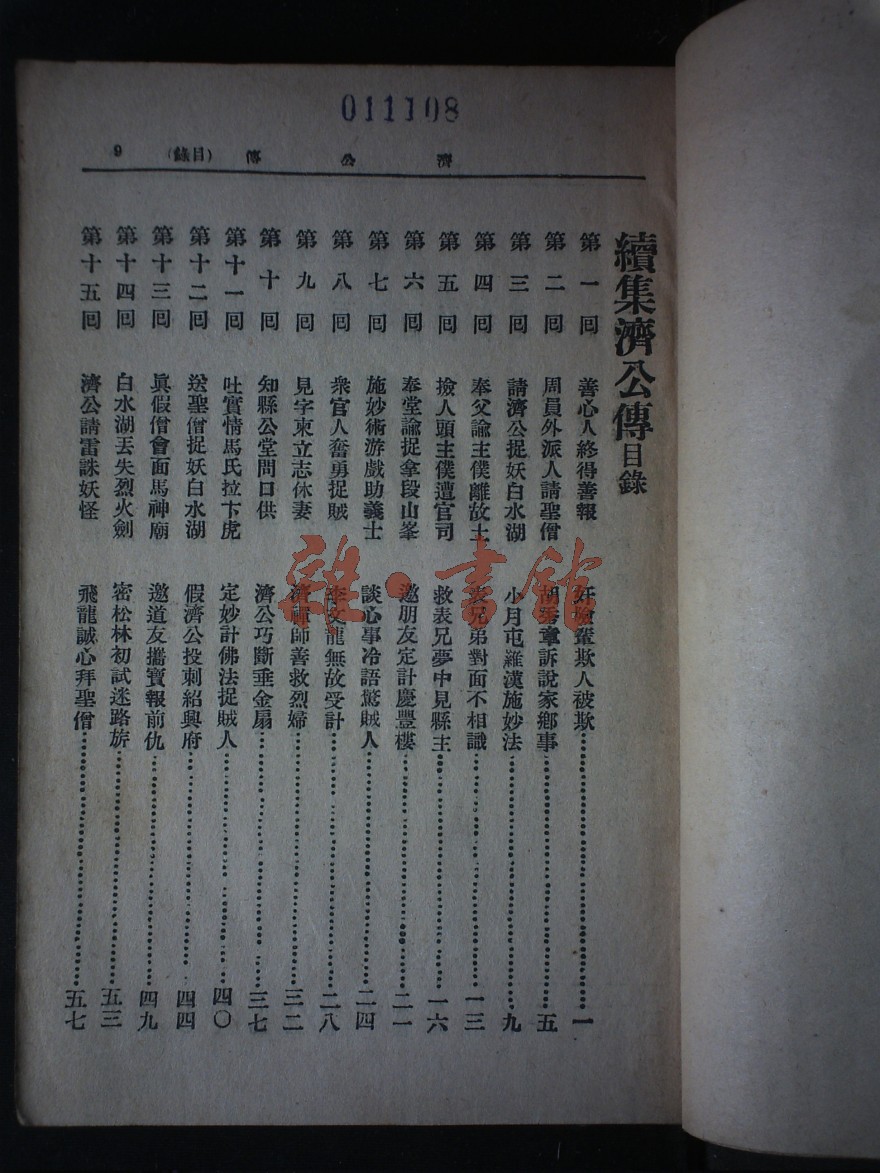 011108
濟公傳 (目錄) 9
續集濟公傳目錄
第一回 善心人終得善報 奸險輩欺人被欺 一
第二回 周員外派人請聖僧 胡秀章訴說家鄉事 五
第三回 請濟公捉妖白水湖 小月屯羅漢施妙法 九
第四回 奉父諭主僕離故土 表兄弟對面不相識 一三
第五回 撿人頭主僕遭官司 救表兄夢中見縣主 一六
第六回 奉堂諭捉拿段山峯 邀朋友定計慶豐樓 二一
第七回 施妙術游戲助義士 談心事冷語驚賊人 二四
第八回 衆官人奮勇捉賊 李文龍無故受計 二八
第九回 見字柬立志休妻 濟禪師善救烈婦 三二
第十回 知縣公堂問口供 濟公巧斷垂金扇 三七
第十一回 吐實情馬氏拉卞虎 定妙計佛法捉賊人 四〇
第十二回 送聖僧捉妖白水湖 假濟公投刺紹興府 四四
第十三回 眞假僧會面馬神廟 邀道友攜寶報前仇 四九
第十四回 白水湖丟失烈火劍 密松林初試迷路旂 五三
第十五回 濟公請雷誅妖怪 飛龍誠心拜聖僧 五七
雜·書館